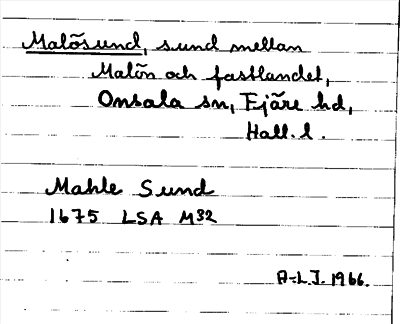 Malösund, sund mellan
Malön och fastlandet,
Onsala sn, Fjäre hd,
Hall. l.
Mahle Sund
1675 LSA M32
A-L.J. 1966.